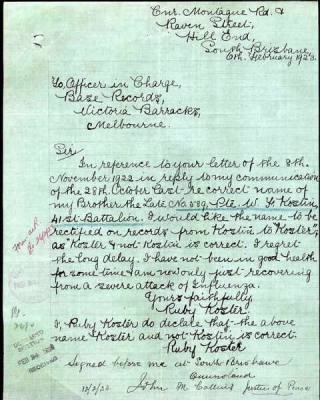 Cnr. Montague Rd. &
Raven Street,
Hill End,
South Brisbane,
6th. February 1923.
To, Officer in Charge,
Base Records,
Victoria Barracks,
Melbourne.
Sir,
In reference to your letter of the 8th.
November 1922 in reply to my communication
of the 28th. October last re correct name of
my Brother the Late No. 539, Pte. W. H. Kostin,
41st Battalion. I would like the name to be
rectified on records from Kostin to "Koster",
as Koster & not Kostin is correct. I regret
the long delay. I have not been in good health
for sometime & am now only just recovering
from a severe attack of Influenza.
Yours faithfully
Ruby Koster.
I, Ruby Koster do declare that the above
name Koster and not Kostin is correct.
Ruby Koster
Signed before me at South Brisbane
Queensland
John M Collins Justice of Peace